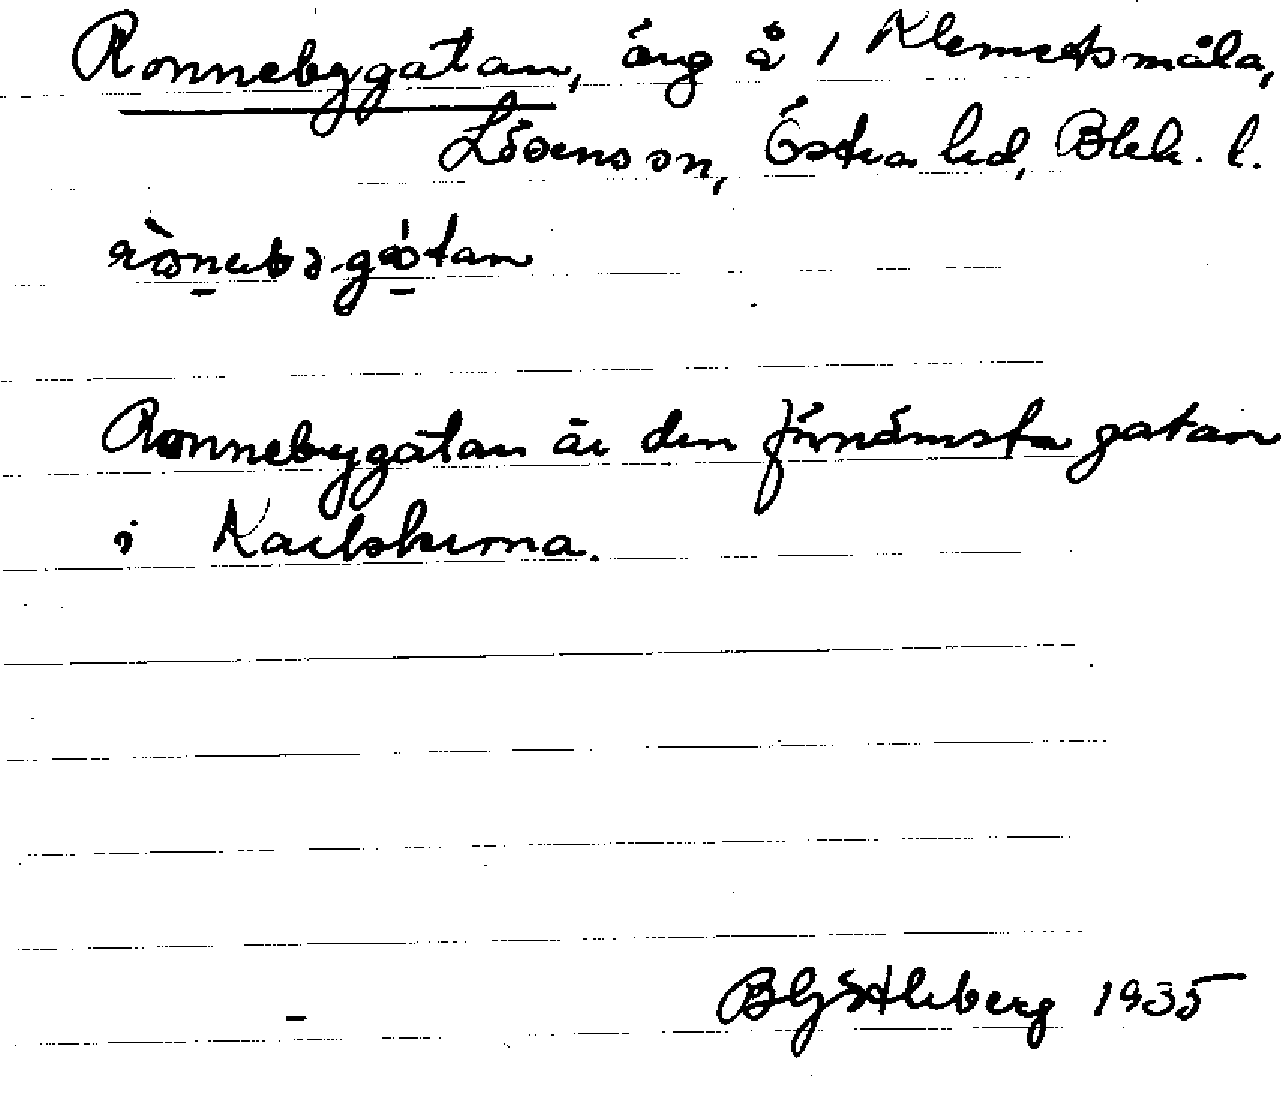 Ronnebygatan, äng å 1 Klemetsmåla,
Lösenson, Östra hd, Blek. l.
Ronnebygatan är den förnämsta gatan
i Karlskrona.
1935